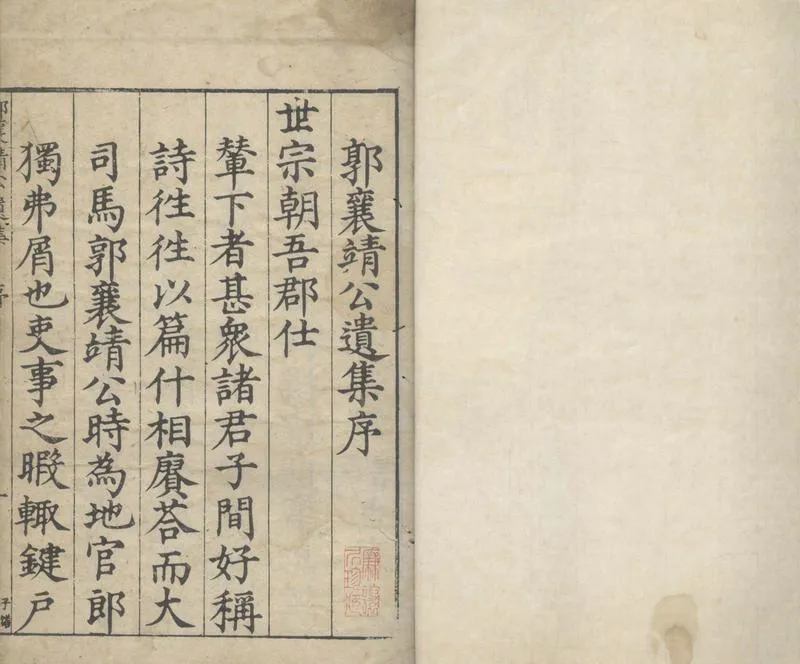 郭襄靖公遺集序
世宗朝吾郡仕
輦下者甚衆諸君子間好稱
詩徃徃以篇什相賡荅而大
司馬郭襄靖公時為地官郎
獨弗屑也吏事之暇輙鍵戸